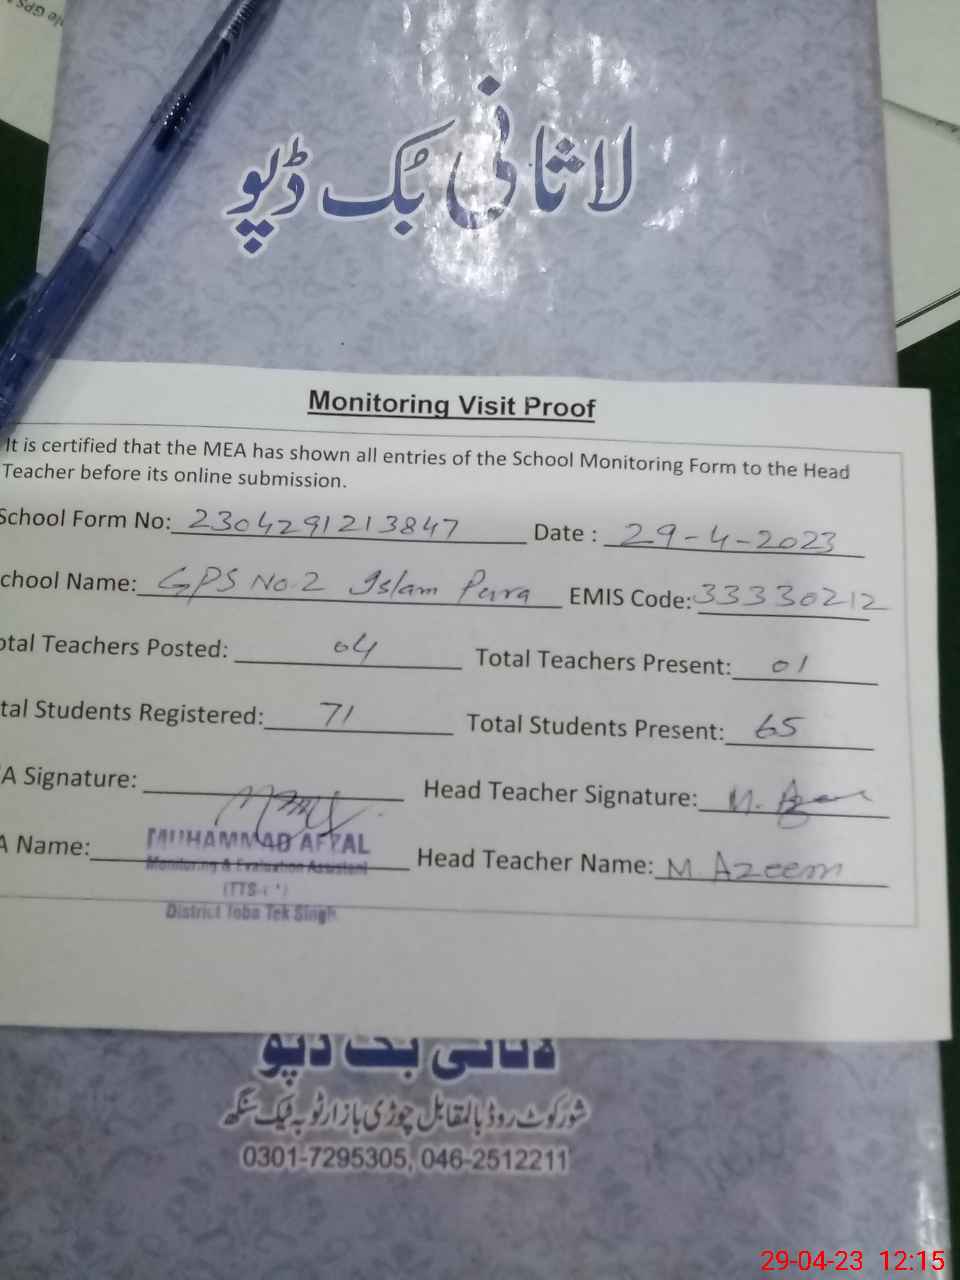 لاثانی بُک ڈپو
Monitoring Visit Proof
It is certified that the MEA has shown all entries of the School Monitoring Form to the Head
Teacher before its online submission.
School Form No: 2304291213847 Date : 29-4-2023
chool Name: GPS No.2 Islam Pura EMIS Code: 33330212
otal Teachers Posted: 04 Total Teachers Present: 01
tal Students Registered: 71 Total Students Present: 65
A Signature: Head Teacher Signature: M. Azeem
A Name: MUHAMMAD AFZAL Head Teacher Name: M Azeem
Monitoring & Evaluation Assistant
District Toba Tek Singh
لاثانی بک ڈپو
شورکوٹ روڈ بالمقابل چوڑی بازار ٹوبہ ٹیک سنگھ
0301-7295305, 046-2512211
29-04-23 12:15